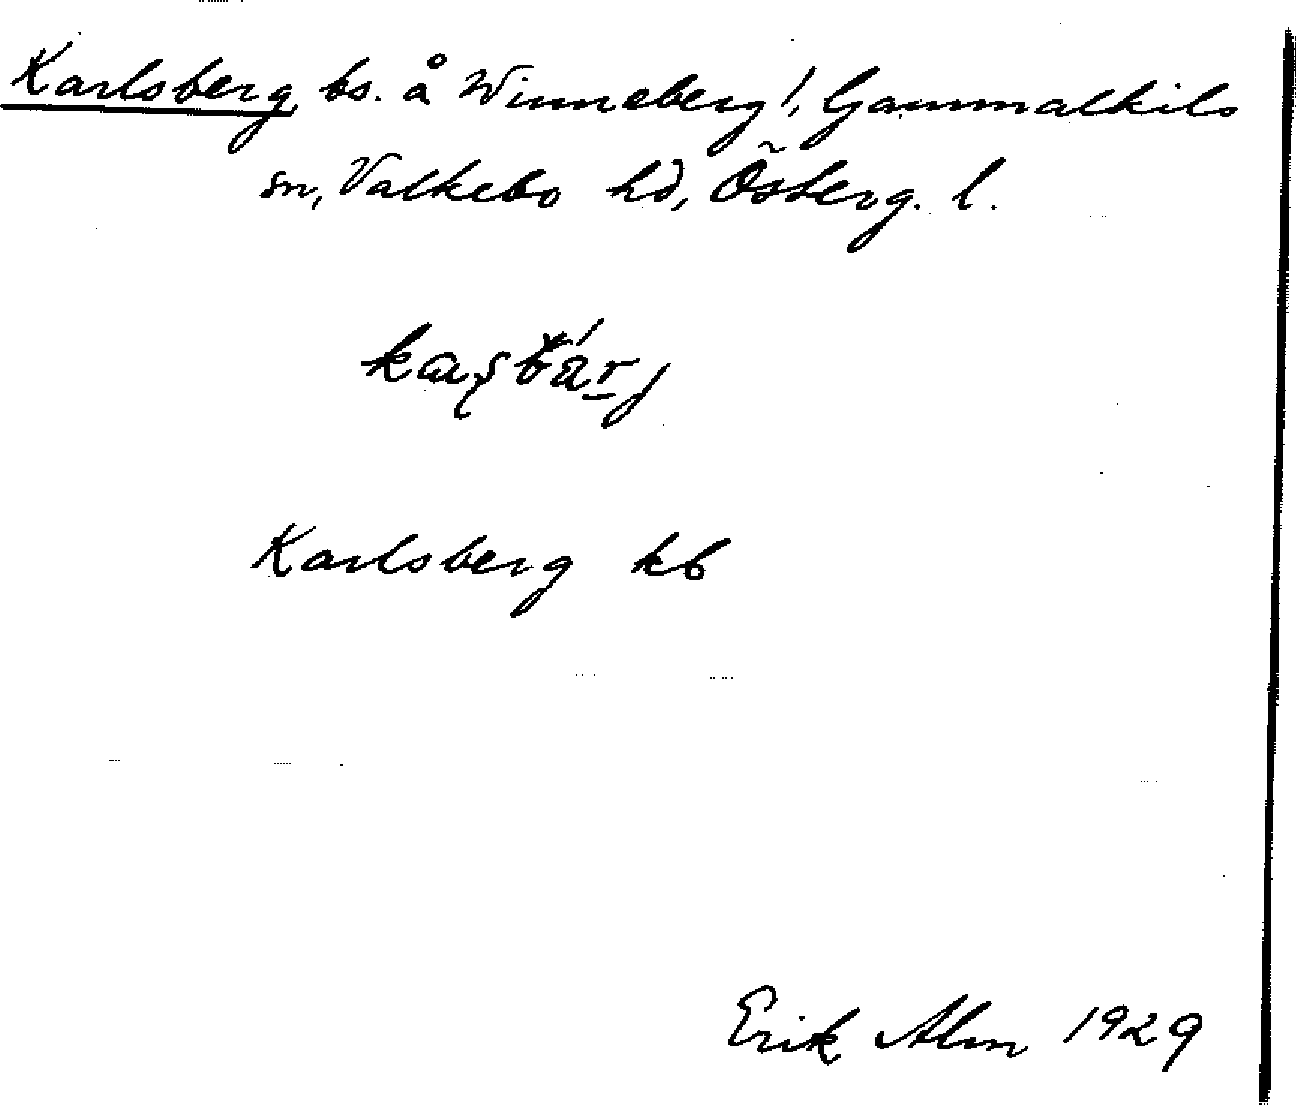 Karlsberg bs. å Winneberg!, Gammalkils
sn, Valkebo hd, Österg. l.
Karlsberg kb
Erik Alm 1929